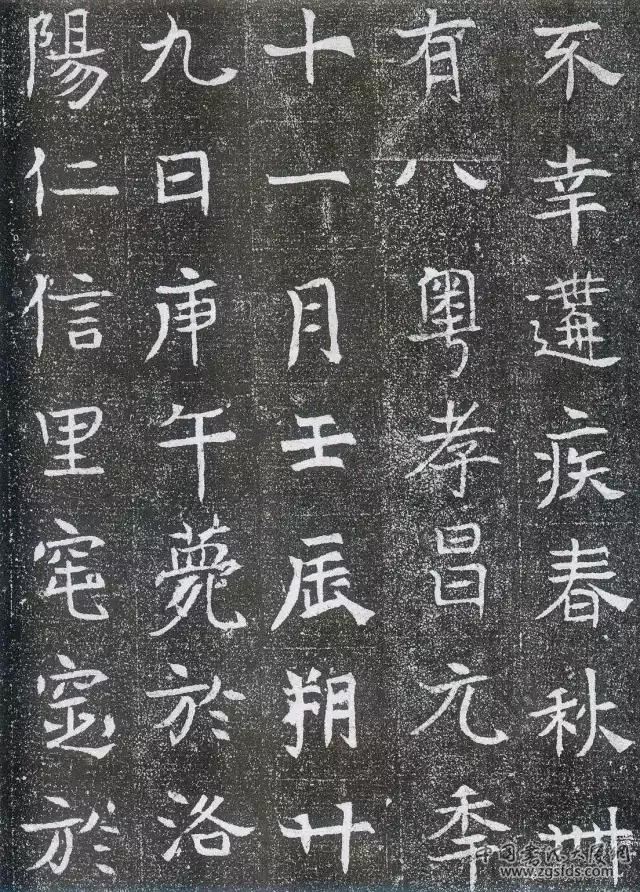 不幸遘疾春秋卌
有八粤孝昌元秊
十一月壬辰朔廿
九日庚午薨於洛
陽仁信里窀窆於
www.zgsfds.com